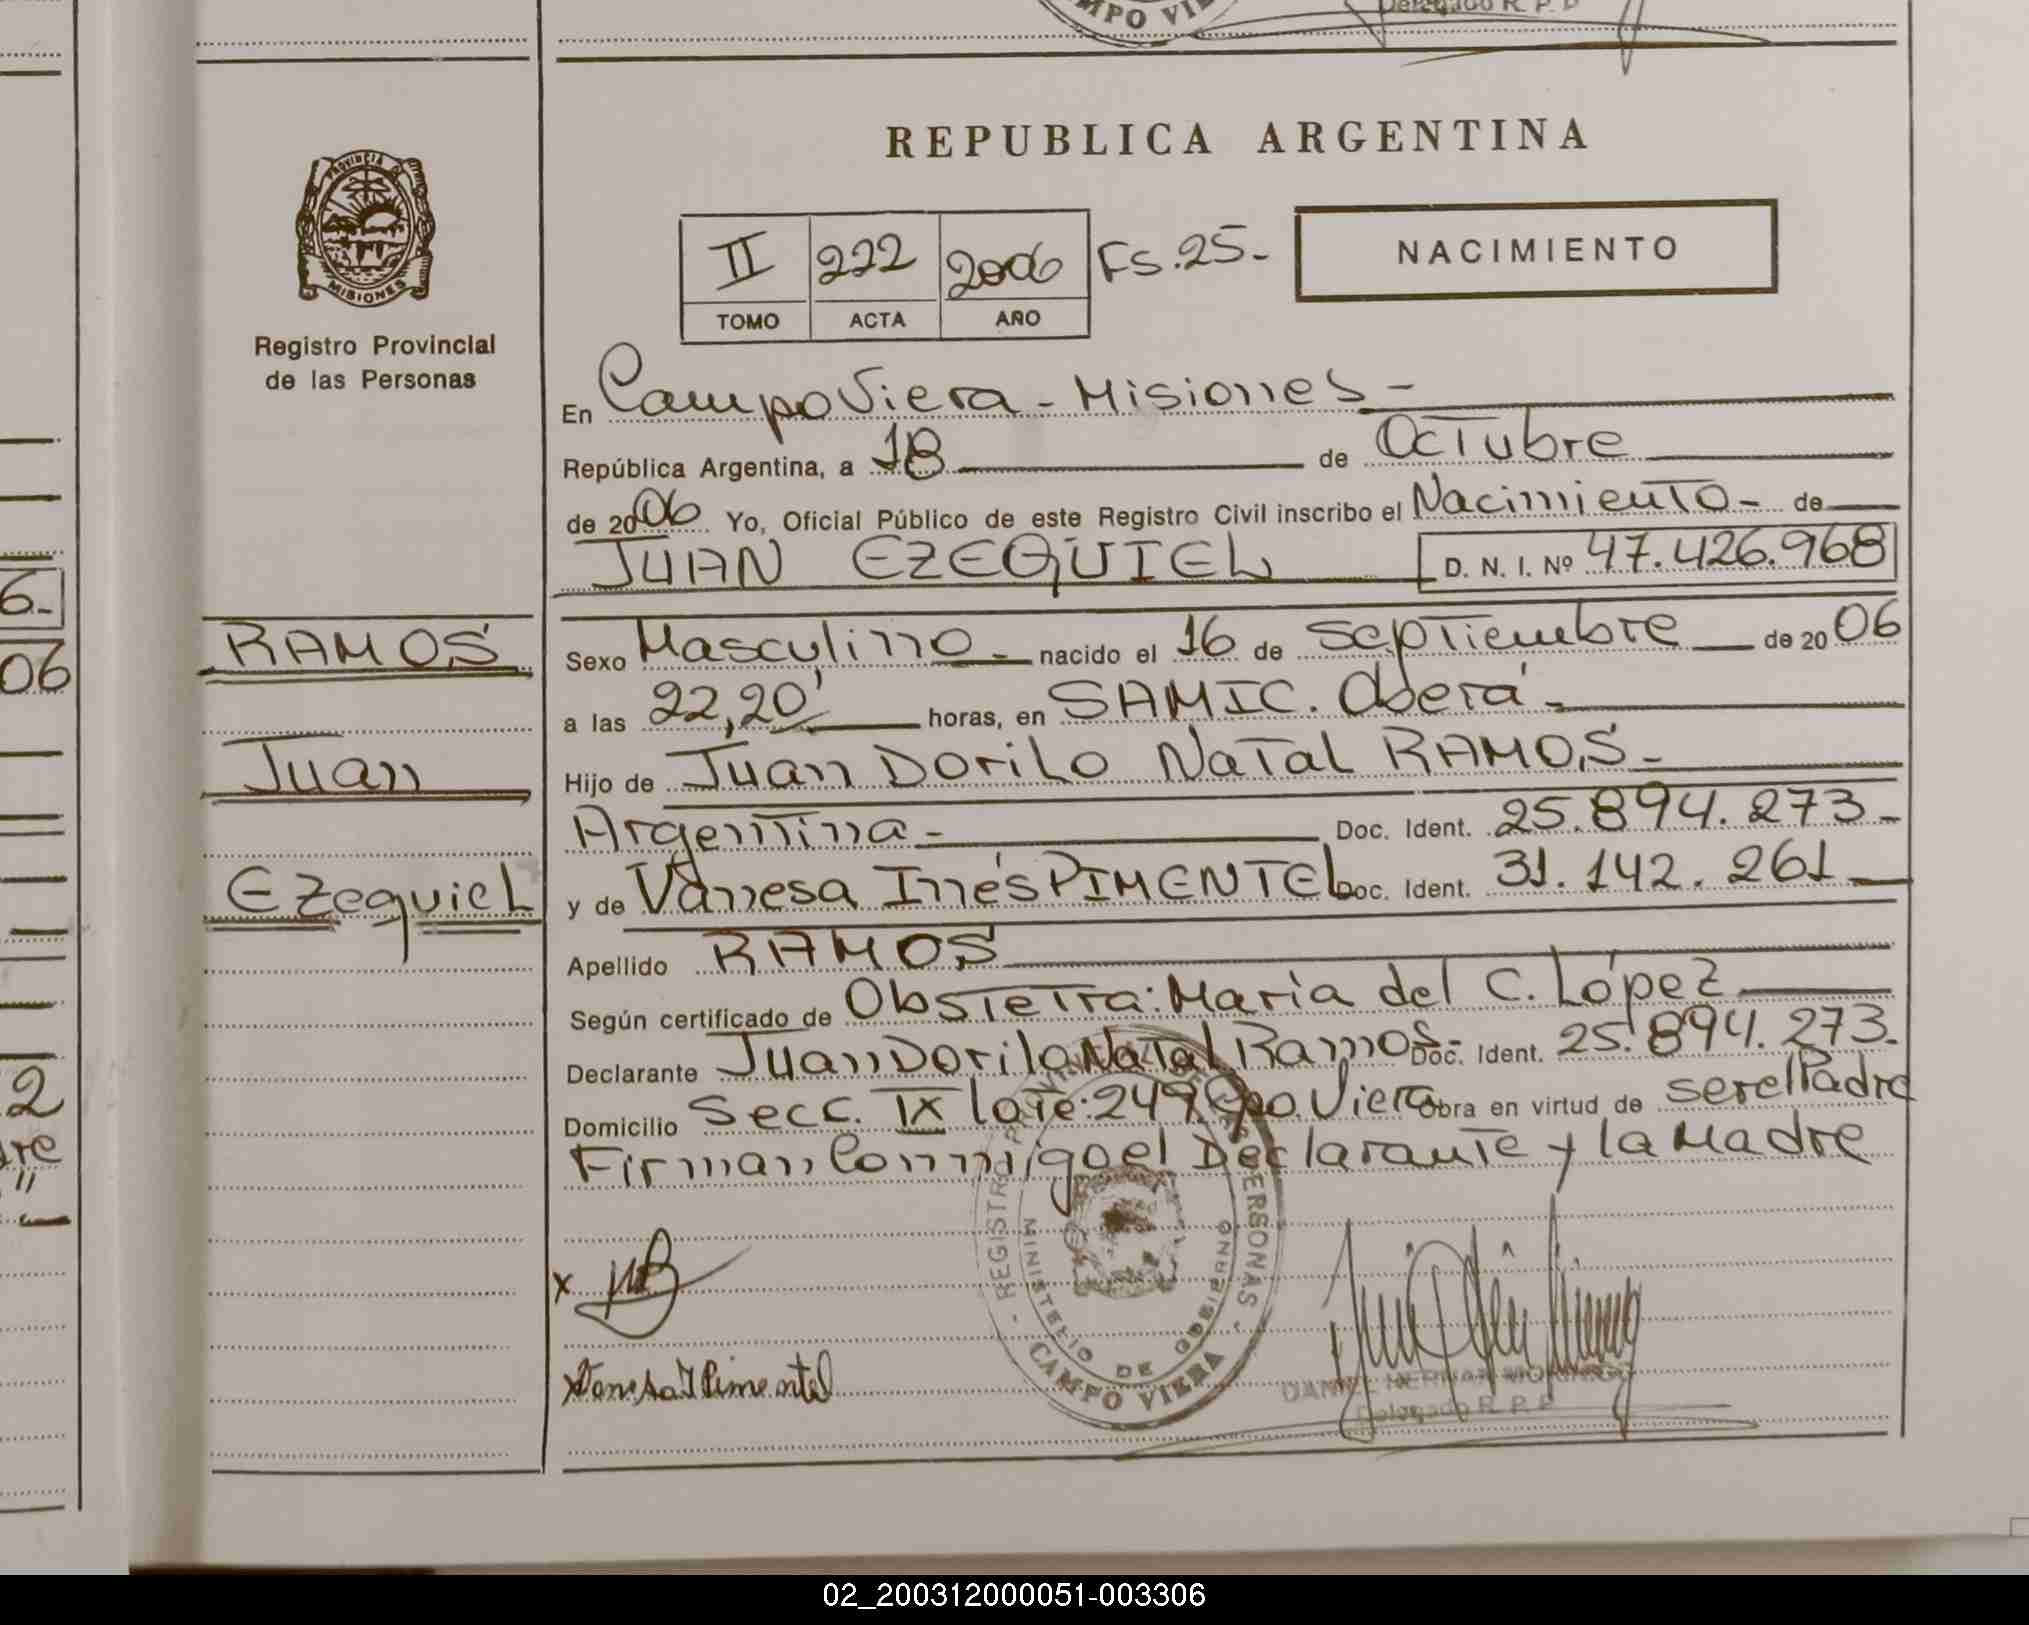 Delegado R. P. P
CAMPO VIERA
REPUBLICA ARGENTINA
PROVINCIA DE
MISIONES
II 222 2006 FS.25-
TOMO ACTA AÑO
NACIMIENTO
Registro Provincial
de las Personas
En Campo Viera - Misiones -
República Argentina, a 18 de Octubre
de 2006 Yo, Oficial Público de este Registro Civil inscribo el Nacimiento - de
JUAN EZEQUIEL D. N. I. Nº 47.426.968
RAMOS
Juan
Ezequiel
Sexo Masculino - nacido el 16 de Septiembre de 2006
a las 22,20' horas, en SAMIC. Oberá -
Hijo de Juan Dorilo Natal RAMOS -
Argentina - Doc. Ident. 25.894.273-
y de Vanesa Inés PIMENTEL Doc. Ident. 31.142.261
Apellido RAMOS
Según certificado de Obstetra: María del C. López
Declarante Juan Dorilo Natal Ramos - Doc. Ident. 25.894.273-
Domicilio Secc. IX lote: 249. Cpo. Viera Obra en virtud de ser el Padre
Firman Conmigo el Declarante y la Madre
X
X Vanesa I Pimentel
REGISTRO PROVINCIAL DE LAS PERSONAS
MINISTERIO DE GOBIERNO
CAMPO VIERA
DANIEL HERNAN
Delegado R. P. P
6.-
06
2
02_200312000051-003306